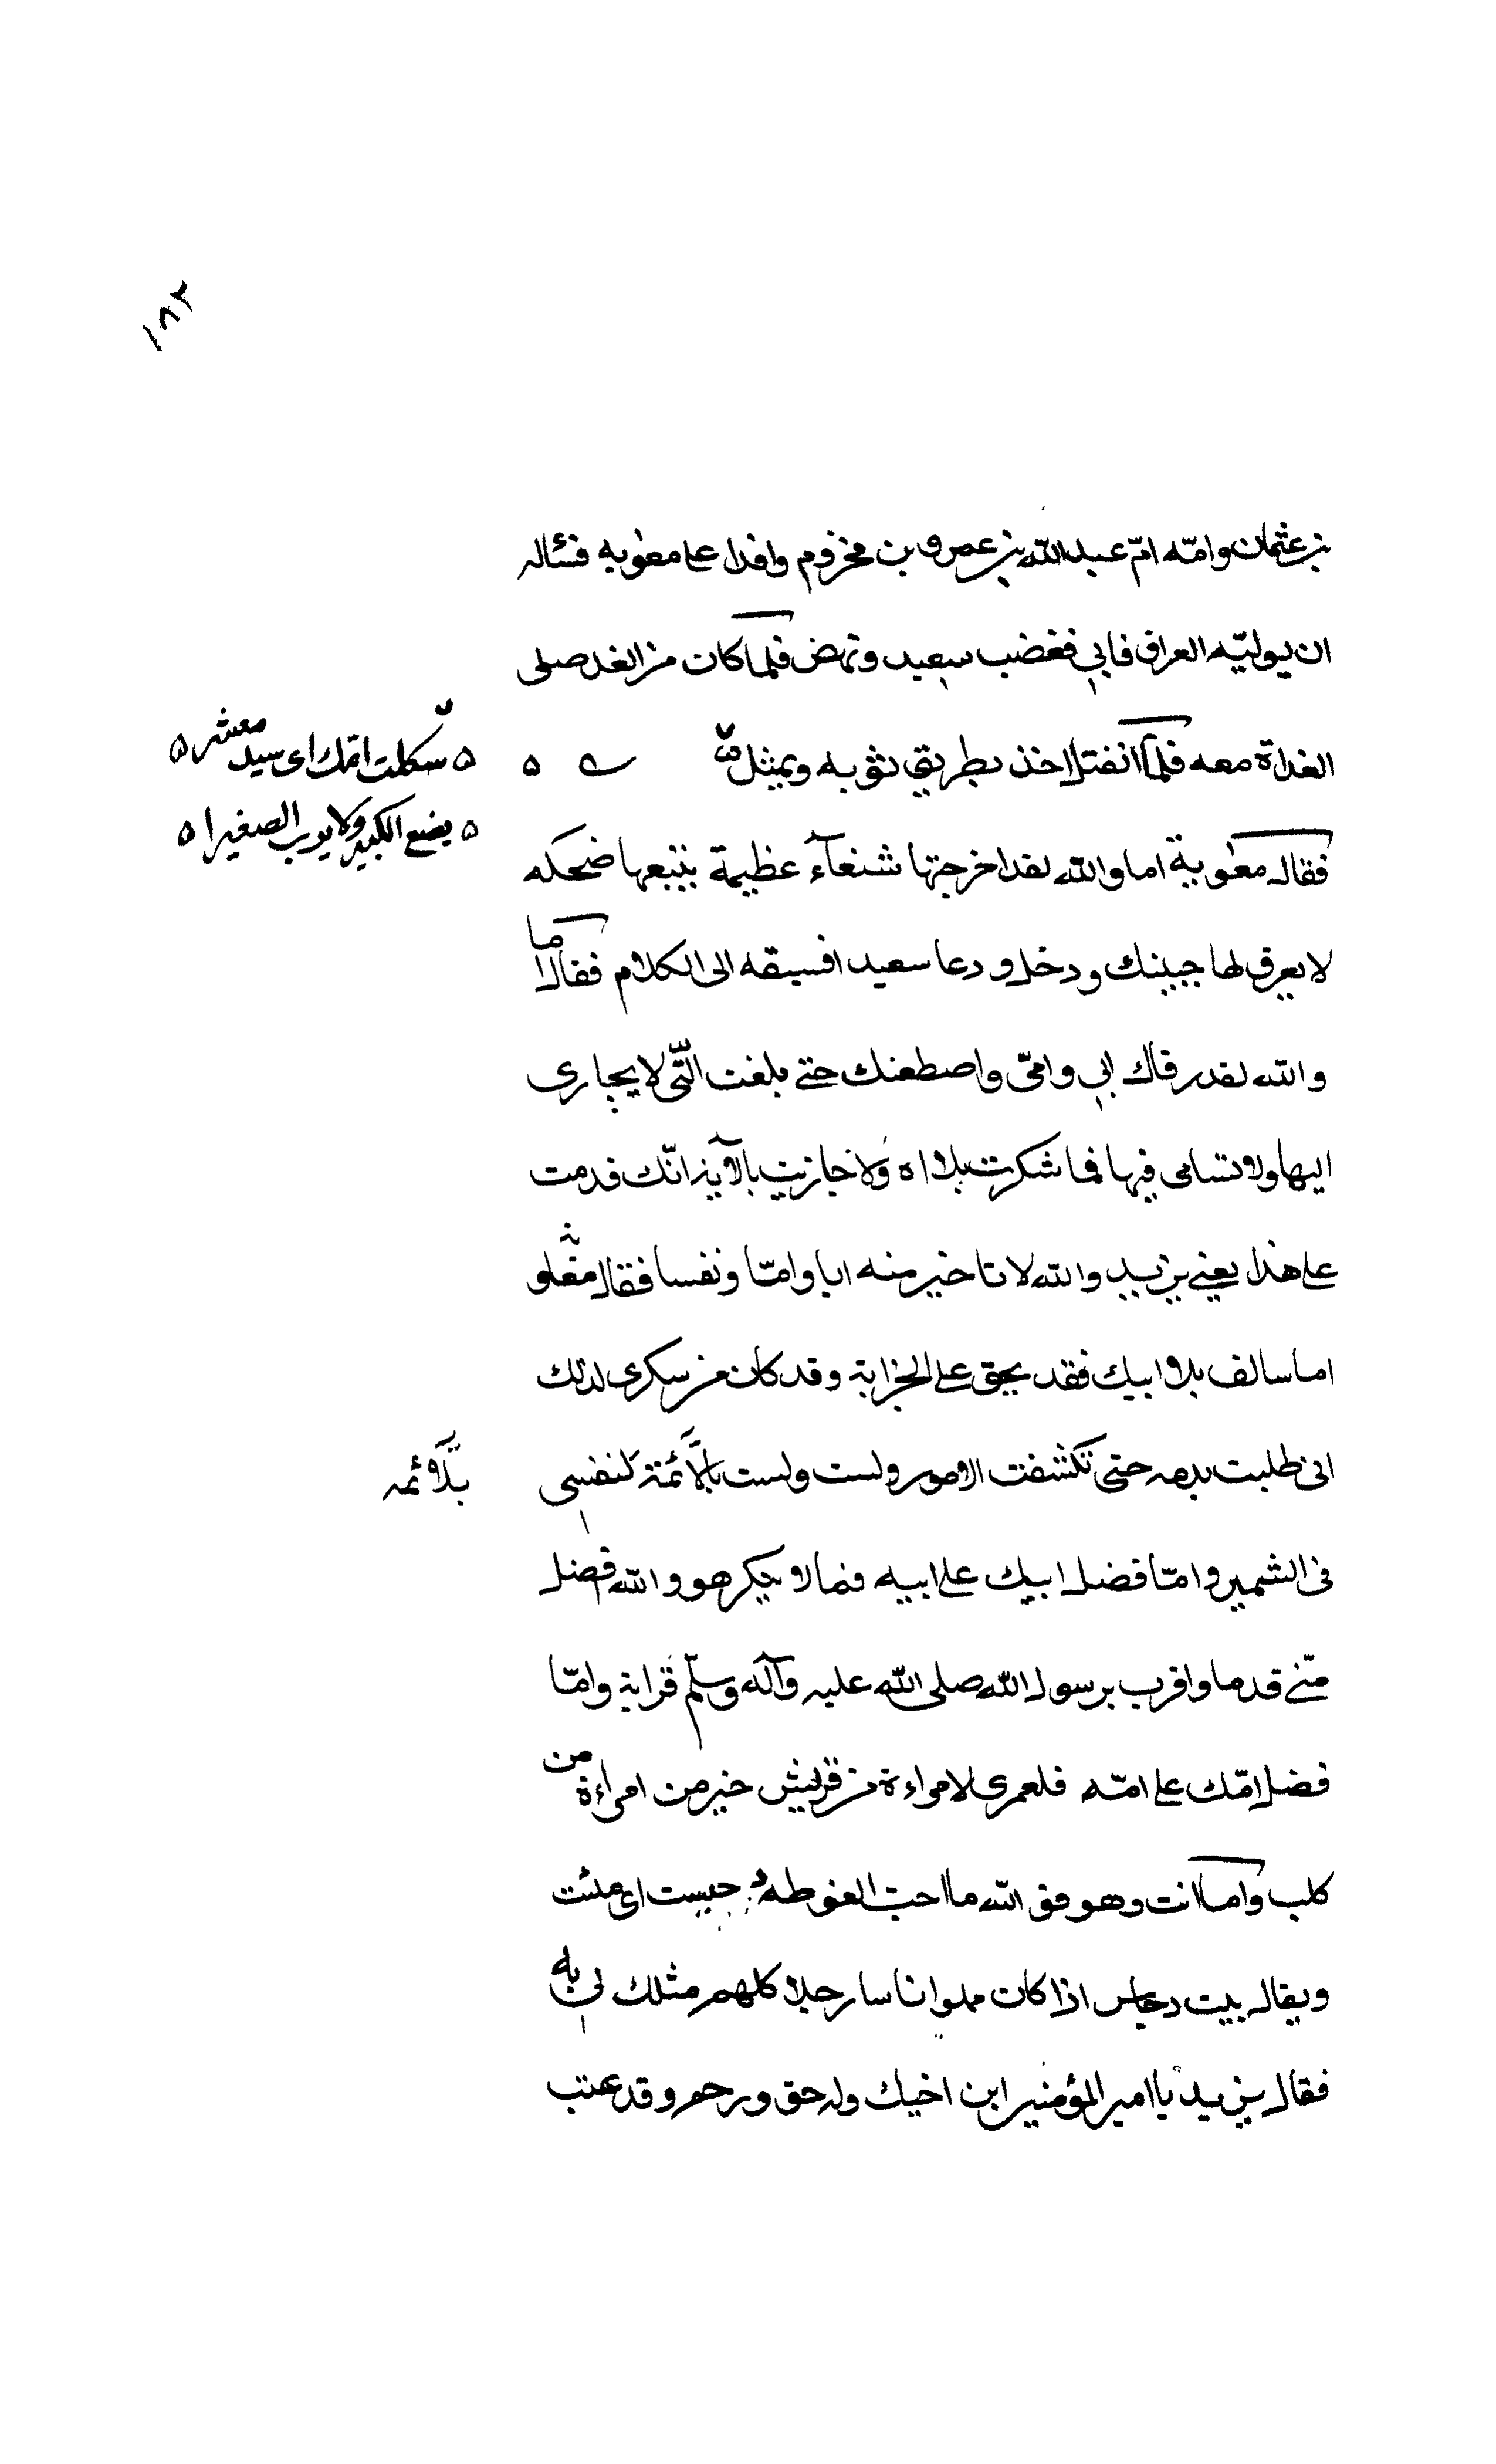 ١٨٢
بن عثمان وامّه امّ عبد الله بن عمرو بن مخزوم وافدا على معوية فسئاله
ان يوليّه العراق فابي فغضب سعيد ونهض فلما كان من الغد صلى
الغداة معه فلما انفتل اخذ بطريقي ثوبه وتمثل
سكلت امّك اى سيد معشر
يضع الكبير ولا يرب الصغيرا
فقال معوية اما والله لقد اخرجتها شنعآء عظيمة يتبعها ضحكه
لا يعرق لها جبينك ودخل ودعا سعيد افسبقه الى الكلام فقال اما
والله لقد رقاك ابي وامّى واصطعنك حتى بلغت التّى لا يجارى
اليها ولا تسامى فيها فما شكرت بلااه ولا جازيت بالآين انّك قدمت
على هذا يعني يزيد والله لانا خير منه ابا وامّا ونفسا فقال معوية
اما سالف بلا ابيك فقد يحق على الجزاية وقد كان من سكرى لذلك
انى طلبت بدمه حتى تكشفت الامور ولست ولست بالآئمة لنفسى
بلآئمه
فى الشمير وامّا فضل ابيك على ابيه فمالا ينكر هو والله افضل
منّى قدما واقرب برسول الله صلى الله عليه وآله وسلّم قرابة وامّا
فضل امّك على امّه فلعمرى لامراءة من قريش خير من امراءة من
كلب واما انت وهو فو الله ما احب الغوطه دحيست اى ملئت
ويقال بيت دحاس اذا كان مملوا ناسا رجلا كلهم مثلك لي به
فقال يزيد يا امير المؤمنين ابن اخيك وله حق ورحم وقد عتب